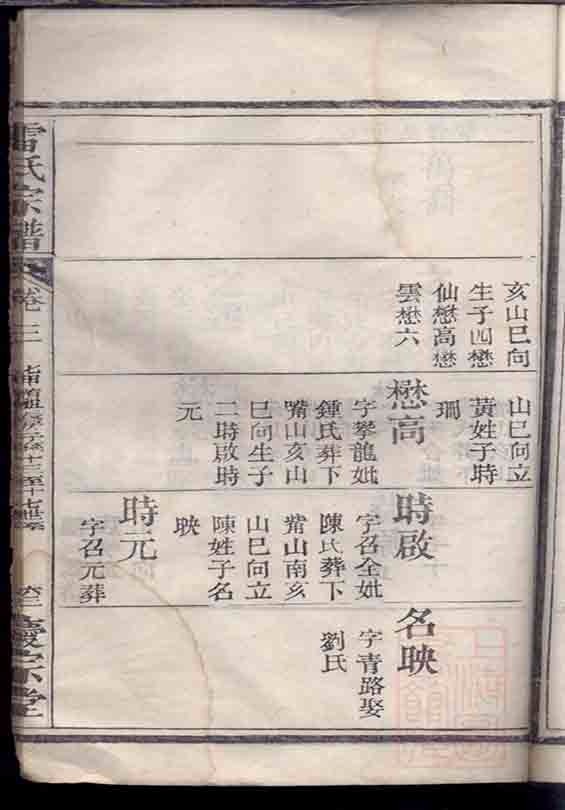 亥山巳向
生子四懋
仙懋高懋
雲懋六
山巳向立
黃姓子時
珊
懋高
字攀龍妣
鍾氏葬下
嘴山亥山
巳向生子
二時啟時
元
時啟
字召全妣
陳氏葬下
嘴山南亥
山巳向立
陳姓子名
映
時元
字召元葬
名映
字青路娶
劉氏
雷氏宗譜
卷三